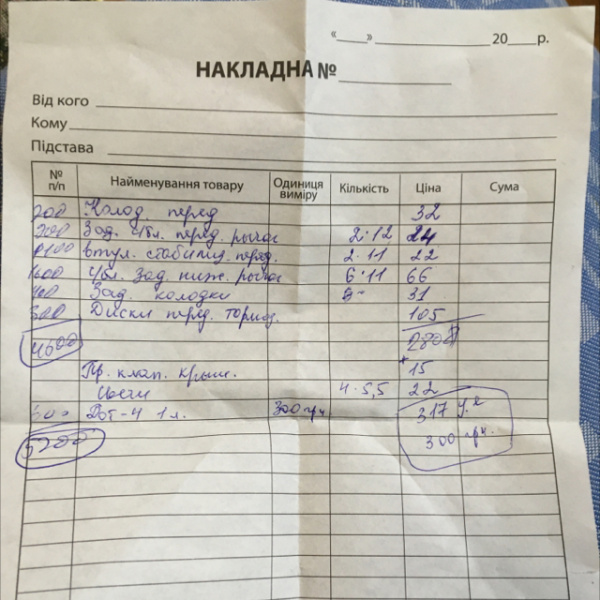 « » 20 р.
НАКЛАДНА №
Від кого
Кому
Підстава
№ п/п Найменування товару Одиниця виміру Кількість Ціна Сума
200 Колод. перед 32
200 Зад. с/бл. перед. рычаг 2·12 24
втул. стабилиз. перед. 2·11 22
1600 с/бл. зад. ниж. рычаг 6·11 66
400 Зад. колодки 31
500 Диски перед. тормоз. 105
4600 280
+15
Пр. клап. крыш.
4·5,5 22
Dот-4 1 л. 300 грн 317 у.е
5200 300 грн.